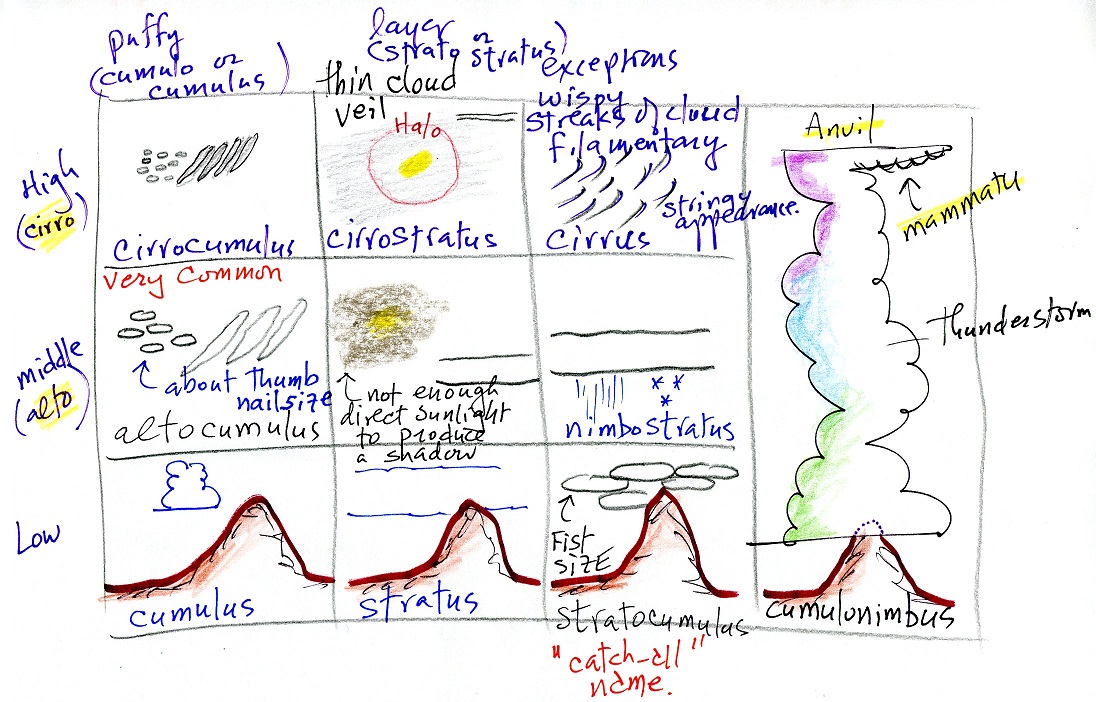 puffy
(cumulo or
cumulus)
layer
(strato or stratus)
exceptions
High
(cirro)
cirrocumulus
thin cloud
veil
Halo
cirrostratus
wispy
streaks of cloud
filamentary
stringy
appearance.
cirrus
Anvil
mammatu
Thunderstorm
middle
(alto)
very common
about thumb
nail size
altocumulus
not enough
direct sunlight
to produce
a shadow
nimbostratus
Low
cumulus
stratus
Fist
size
stratocumulus
"catch-all"
name.
cumulonimbus